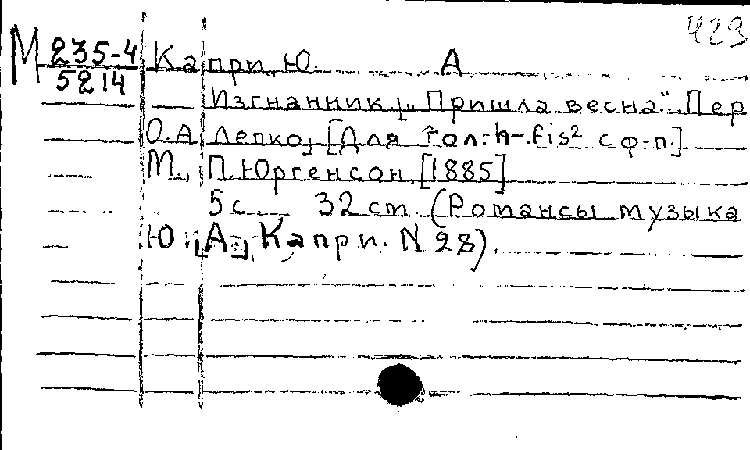 423
М 235-4
5214
Капри Ю. А
Изгнанник „Пришла весна". Пер
О.А Лепко, [Для гол: h-fis² с ф-п.]
М., П. Юргенсон [1885]
5 с 32 cm (Романсы музыка
Ю. [А.] Капри. N 28).